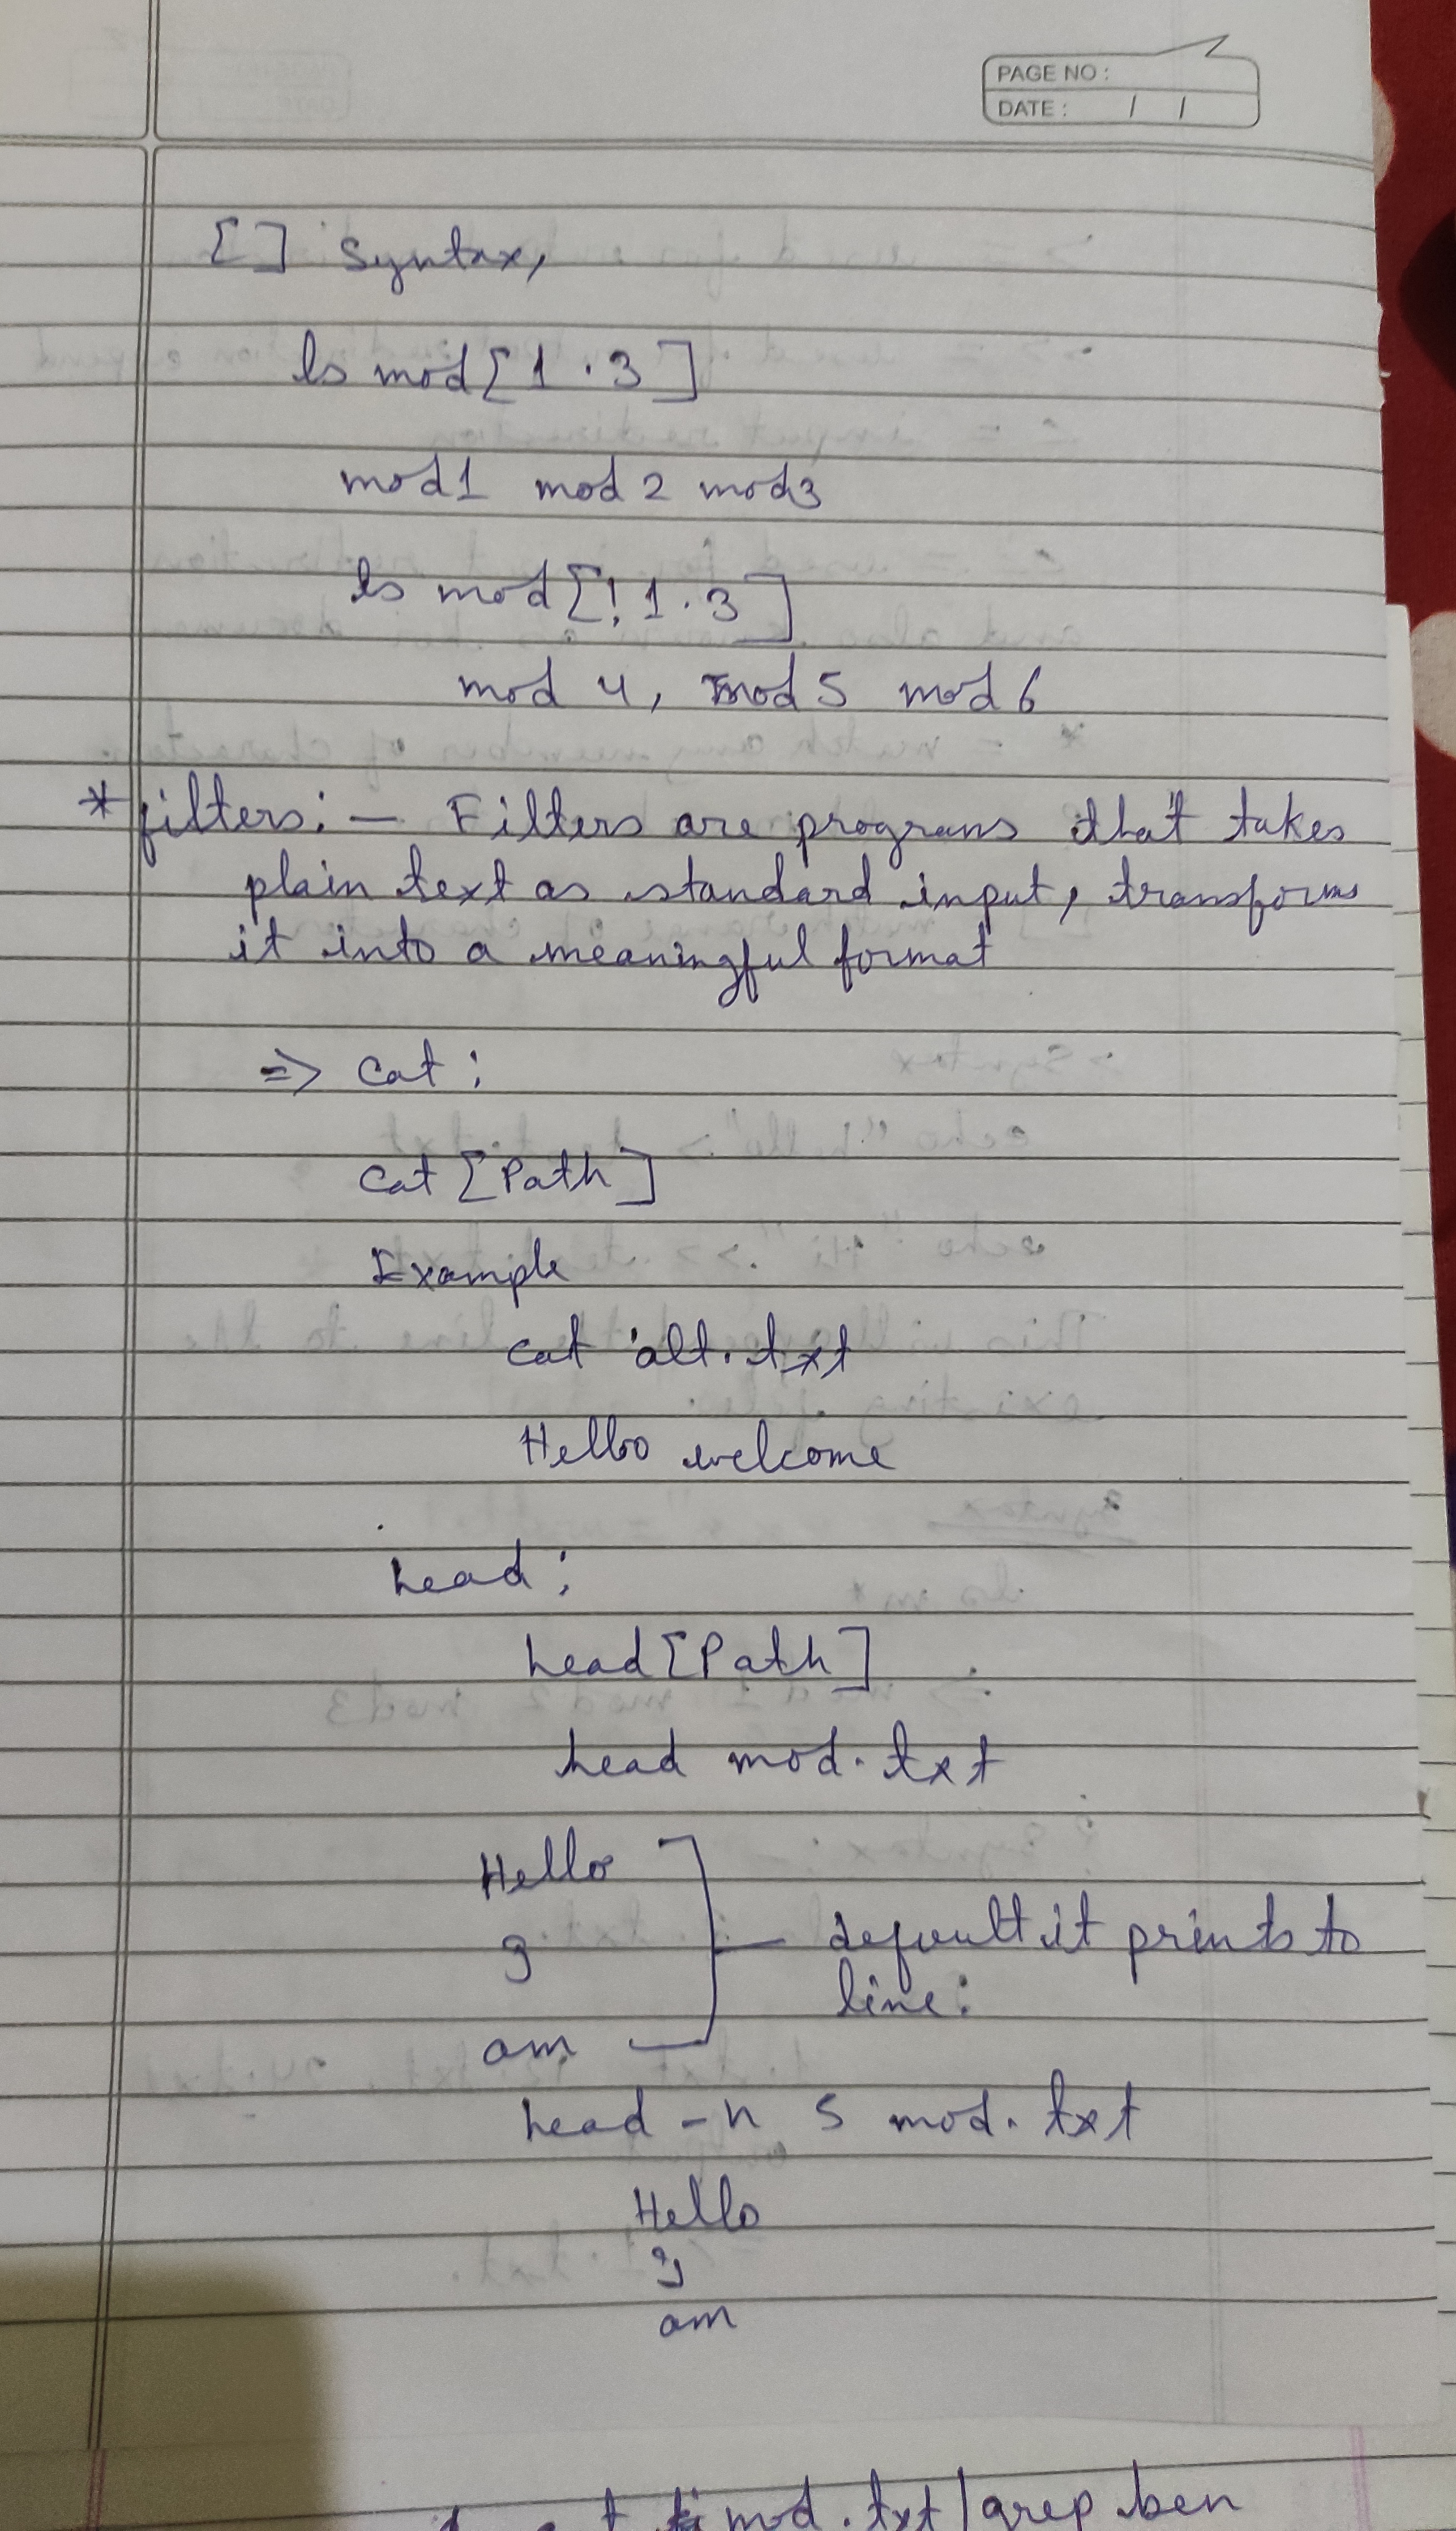 PAGE NO :
DATE : / /
[] Syntax,
ls mod[1.3]
mod1 mod2 mod3
ls mod[!1.3]
mod 4, mod5 mod6
* filters:- Filters are programs that takes
plain text as standard input, transforms
it into a meaningful format
=> cat:
cat [Path]
Example
cat alt.txt
Hello welcome
head:
head [Path]
head mod.txt
Hello
g
am
default it prints to
line:
head -n 5 mod.txt
Hello
g
am
mod.txt | grep ben